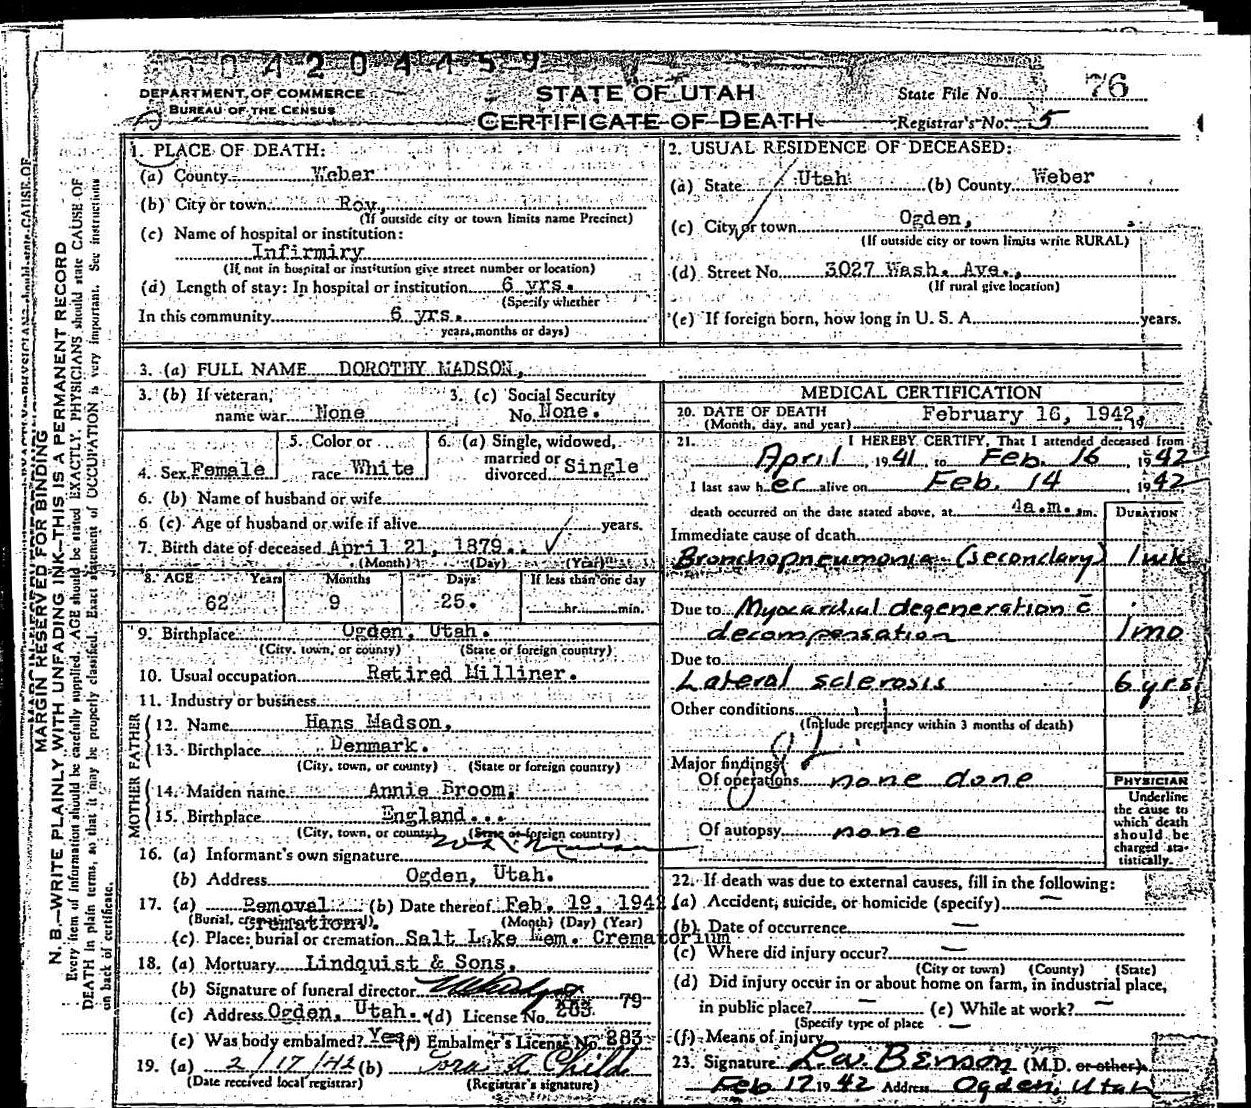 04204459
DEPARTMENT OF COMMERCE
BUREAU OF THE CENSUS
STATE OF UTAH
CERTIFICATE OF DEATH
State File No. 76
Registrar's No. 5
MARGIN RESERVED FOR BINDING
N. B.—WRITE PLAINLY WITH UNFADING INK—THIS IS A PERMANENT RECORD
Every item of information should be carefully supplied. AGE should be stated EXACTLY. PHYSICIANS should state CAUSE OF
DEATH in plain terms, so that it may be properly classified. Exact statement of OCCUPATION is very important. See instructions
on back of certificate.
1. PLACE OF DEATH:
(a) County Weber
(b) City or town Roy,
(If outside city or town limits name Precinct)
(c) Name of hospital or institution:
Infirmiry
(If not in hospital or institution give street number or location)
(d) Length of stay: In hospital or institution 6 yrs.
(Specify whether
In this community 6 yrs.
years, months or days)
2. USUAL RESIDENCE OF DECEASED:
(a) State Utah (b) County Weber
(c) City or town Ogden,
(If outside city or town limits write RURAL)
(d) Street No. 3027 Wash. Ave.,
(If rural give location)
(e) If foreign born, how long in U. S. A. years.
3. (a) FULL NAME DOROTHY MADSON,
3. (b) If veteran, name war None
3. (c) Social Security No. None.
4. Sex Female
5. Color or race White
6. (a) Single, widowed, married or divorced Single
6. (b) Name of husband or wife
6 (c) Age of husband or wife if alive years.
7. Birth date of deceased April 21, 1879.
(Month) (Day) (Year)
8. AGE Years Months Days If less than one day
62 9 25. hr. min.
9. Birthplace Ogden, Utah.
(City, town, or county) (State or foreign country)
10. Usual occupation Retired Milliner.
11. Industry or business
FATHER
12. Name Hans Madson,
13. Birthplace Denmark.
(City, town, or county) (State or foreign country)
MOTHER
14. Maiden name Annie Broom,
15. Birthplace England...
(City, town, or county) (State or foreign country)
16. (a) Informant's own signature
(b) Address Ogden, Utah.
17. (a) Removal (b) Date thereof Feb. 19, 1942
(Burial, cremation) Cremation). (Month) (Day) (Year)
(c) Place: burial or cremation Salt Lake Mem. Crematorium
18. (a) Mortuary Lindquist & Sons,
(b) Signature of funeral director 79
(c) Address Ogden, Utah. (d) License No. 283
(e) Was body embalmed? Yes (f) Embalmer's License No. 283
19. (a) 2/17/42 (b) Child
(Date received local registrar) (Registrar's signature)
MEDICAL CERTIFICATION
20. DATE OF DEATH February 16, 1942,
(Month, day, and year) 19
21. I HEREBY CERTIFY, That I attended deceased from
April, 1941, to Feb. 16 1942
I last saw her alive on Feb. 14, 1942
death occurred on the date stated above, at 4a.m. m.
DURATION
Immediate cause of death
Bronchopneumonia (secondary) 1 wk
Due to Myocardial degeneration c̄
decompensation 1 mo
Due to
Lateral sclerosis 6 yrs
Other conditions
(Include pregnancy within 3 months of death)
Major findings
Of operations none done
Of autopsy none
PHYSICIAN
Underline
the cause to
which death
should be
charged sta-
tistically.
22. If death was due to external causes, fill in the following:
(a) Accident, suicide, or homicide (specify) —
(b) Date of occurrence —
(c) Where did injury occur? —
(City or town) (County) (State)
(d) Did injury occur in or about home on farm, in industrial place,
in public place? — (e) While at work? —
(Specify type of place
(f) Means of injury —
23. Signature L.W. Benson (M.D. or other)
Feb 17 1942 Address Ogden, Utah